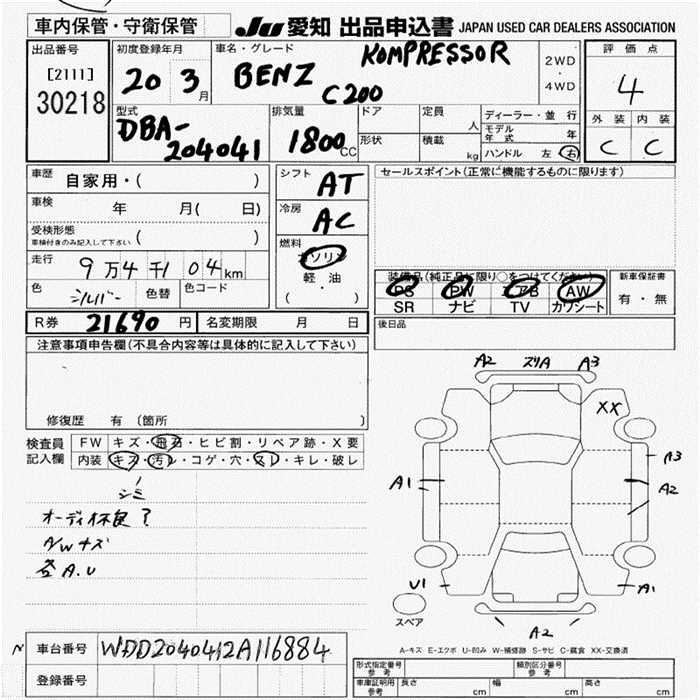 車内保管・守衛保管 JU 愛知 出品申込書 JAPAN USED CAR DEALERS ASSOCIATION
出品番号
[2111]
30218
初度登録年月
20 3月
車名・グレード
BENZ KOMPRESSOR
C200
2WD
・
4WD
評価点
4
外装 内装
C C
型式
DBA-
204041
排気量
1800cc
ドア 定員 人
形状 積載 kg
ディーラー・並行
モデル年式 年
ハンドル 左 右
車歴 自家用・( )
車検 年 月( 日)
受検形態
車検付きのみ記入して下さい ( )
走行 9万4千104km
色 シルバー 色替 色コード
シフト AT
冷房 AC
燃料
ガソリン
軽・油
( )
セールスポイント(正常に機能するものに限ります)
装備品(純正品に限り○をつけてください)
PS PW エアB AW
SR ナビ TV カワシート
新車保証書
有・無
R券 21690円 名変期限 月 日
後日品
注意事項申告欄(不具合内容等は具体的に記入して下さい)
修復歴 有 (箇所 )
検査員
記入欄
FW キズ・飛石・ヒビ割・リペア跡・X要
内装 キズ・汚レ・コゲ・穴・スレ・キレ・破レ
シミ
オーディオ不良?
A/Wキズ
各A.U
A2 ズリA A3
XX
A3
A1 A2
U1 A1
スペア
A2
A-キズ E-エクボ U-凹み W-補修跡 S-サビ C-腐食 XX-交換済
車台番号 WDD2040412A116884
登録番号
形式指定番号
参考
類別区分番号
参考
車庫証明用
参考
長さ cm 幅 cm 高さ cm